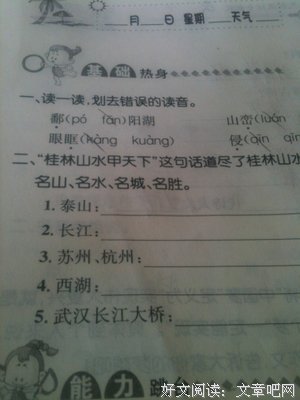 月 日 星期 天气
基础热身
一、读一读，划去错误的读音。
鄱(pó fān)阳湖 山峦(luán
眼眶(kàng kuàng) 侵(qīn qǐn
二、“桂林山水甲天下”这句话道尽了桂林山水
名山、名水、名城、名胜。
1. 泰山：
2. 长江：
3. 苏州、杭州：
4. 西湖：
5. 武汉长江大桥：
能力
好文阅读：文章吧网